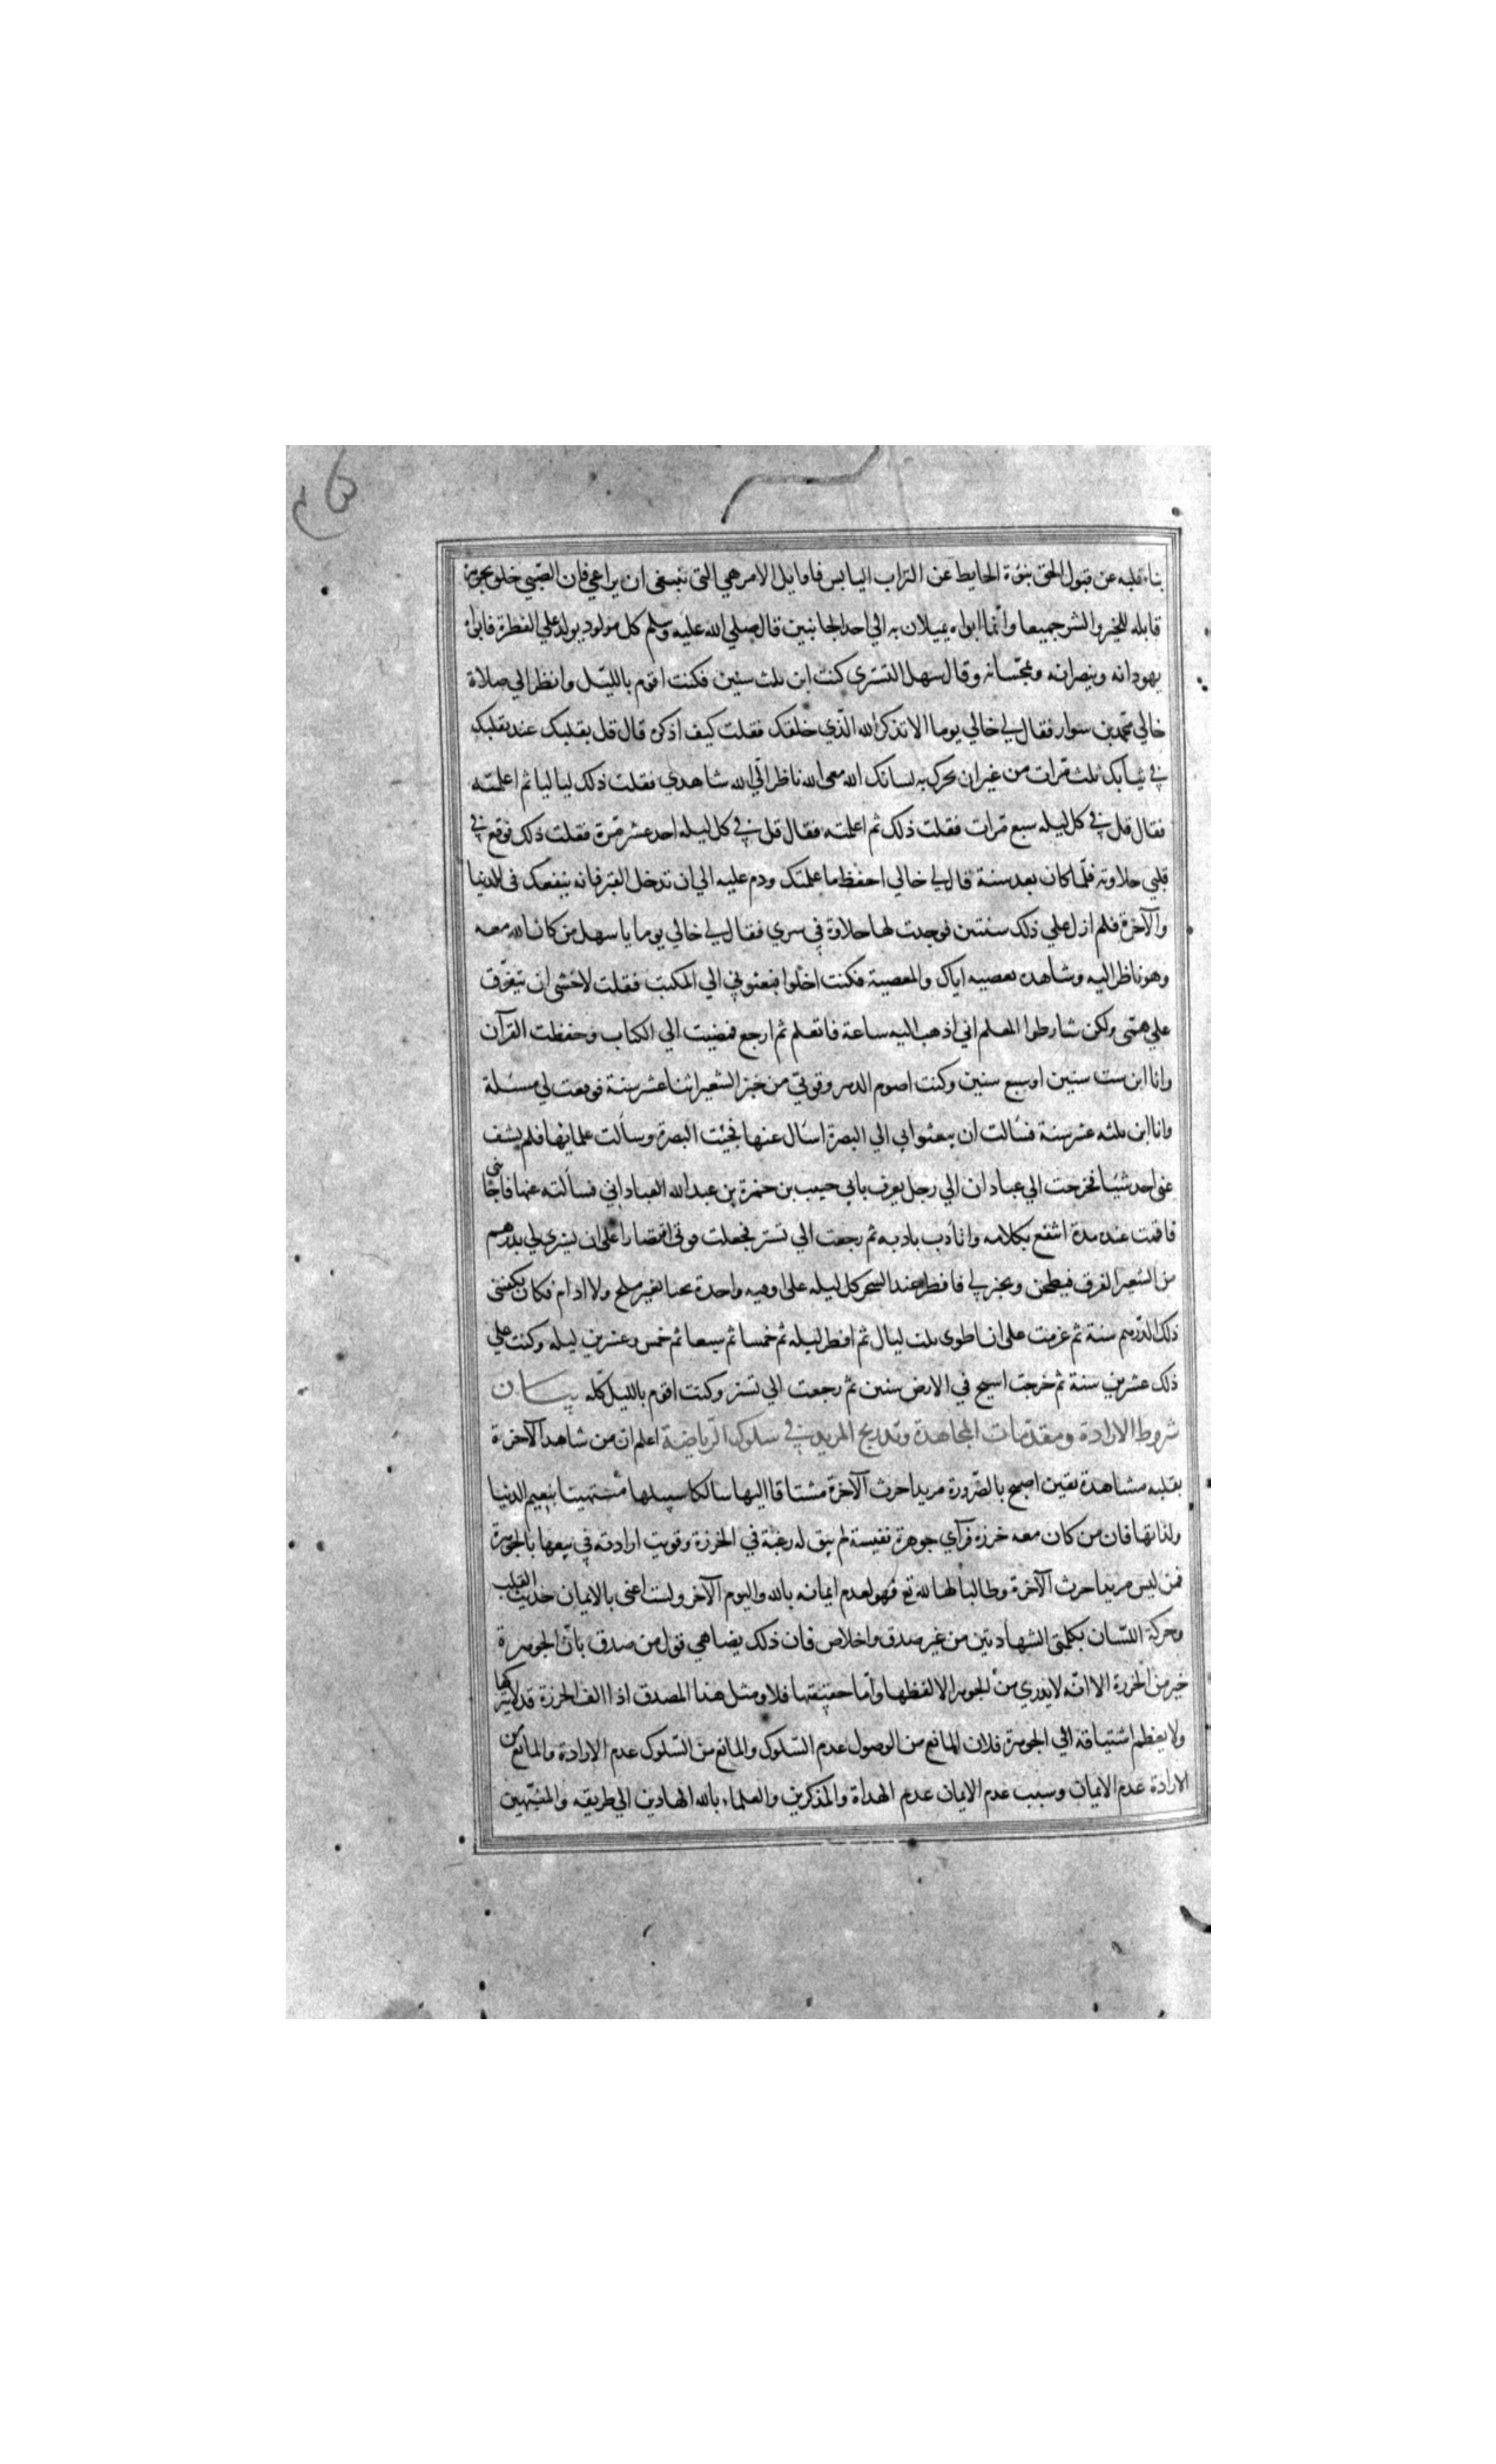 نباء قلبه عن قبول الحق نبوة الحايط عن التراب اليابس فاوايل الامر هي التى ينبغى ان يراعي فان الصبي خلق بجوهره
قابله للخير والشر جميعا وانما ابواه يميلان به الي احد الجانبين قال صلي الله عليه وسلم كل مولود يولد علي الفطرة فابواه
يهودانه وينصرانه ويمجسانه وقال سهل التستري كنت ابن ثلث سنين فكنت اقوم بالليل وانظر الي صلاة
خالي محمد بن سوار فقال لي خالي يوما الا تذكر الله الذي خلقك فقلت كيف اذكره قال قل بقلبك عند تقلبك
في ثيابك ثلث مرات من غير ان تحرك به لسانك الله معى الله ناظر الي الله شاهدي فقلت ذلك ليا ليا ثم اعلمته
فقال قل في كل ليله سبع مرات فقلت ذلك ثم اعلمته فقال قل في كل ليله احد عشر مرة فقلت ذلك فوقع في
قلبي حلاوته فلما كان بعد سنة قال لي خالي احفظ ما علمتك ودم عليه الي ان تدخل القبر فانه ينفعك في الدنيا
والآخرة فلم ازل علي ذلك سنتين فوجدت لها حلاوة في سري فقال لي خالي يوما يا سهل من كان الله معه
وهو ناظر اليه وشاهده يعصيه اياك والمعصية فكنت اخلوا فبعثوني الي المكتب فقلت لاخشى ان يتفرق
علي همتى ولكن شارطوا المعلم اني اذهب اليه ساعة فاتعلم ثم ارجع فمضيت الي الكتاب وحفظت القرآن
وانا ابن ست سنين او سبع سنين وكنت اصوم الدهر وقوتي من خبز الشعير اثنا عشر سنة فوقعت لي مسئلة
وانا ابن ثلثه عشر سنة فسالت ان يبعثوا بي الي البصرة اسال عنها فجئت البصرة وسألت علمائها فلم يشف
عنى احد شيئا فخرجت الي عبادان الي رجل يعرف بابي حبيب بن حمزة بن عبد الله العباداني فسألته عنها فاجابني
فاقمت عنده مدة انتفع بكلامه واتأدب بادبه ثم رجعت الي تستر فجعلت قوتي اقتصارا على ان يشري لي بدرهم
من الشعير الفرق فيطحن ويخبز لي فافطر عند السحر كل ليله على اوقيه واحدة بحتا بغير ملح ولا ادام فكان يكفيني
ذلك الدرهم سنة ثم عزمت على ان اطوى ثلث ليال ثم افطر ليله ثم خمسا ثم سبعا ثم خمس وعشرين ليله وكنت علي
ذلك عشرين سنة ثم خرجت اسيح في الارض سنين ثم رجعت الي تستر وكنت اقوم بالليل كله بيان
شروط الارادة ومقدمات المجاهدة وتدريج المريد في سلوك الرياضة اعلم ان من شاهد الآخرة
بقلبه مشاهدة يقين اصبح بالضرورة مريدا حرث الآخرة مشتاقا اليها سالكا سبيلها مستهينا بنعيم الدنيا
ولذاتها فان من كان معه خرزة فرآي جوهرة نفيسة لم يبق له رغبة في الخرزة وقويت ارادته في بيعها بالجوهرة
فمن ليس مريدا حرث الآخرة وطالبا لها لله تع فهو لعدم ايمانه بالله واليوم الآخر ولست اعنى بالايمان حديث القلب
وحركة اللسان بكلمتى الشهادتين من غير صدق واخلاص فان ذلك يضاهي قول من صدق بان الجوهرة
خير من الخرزة الا انه لا يدري من الجوهر الا لفظها واما حقيقتها فلا ومثل هذا المصدق اذا الف الخرزة قد لا يتركها
ولا يعظم اشتياقه الي الجوهرة فلان المانع من الوصول عدم السلوك والمانع من السلوك عدم الارادة والمانع من
الارادة عدم الايمان وسبب عدم الايمان عدم الهداة والمذكرين والعلماء بالله الهادين الي طريقه والمنبهين